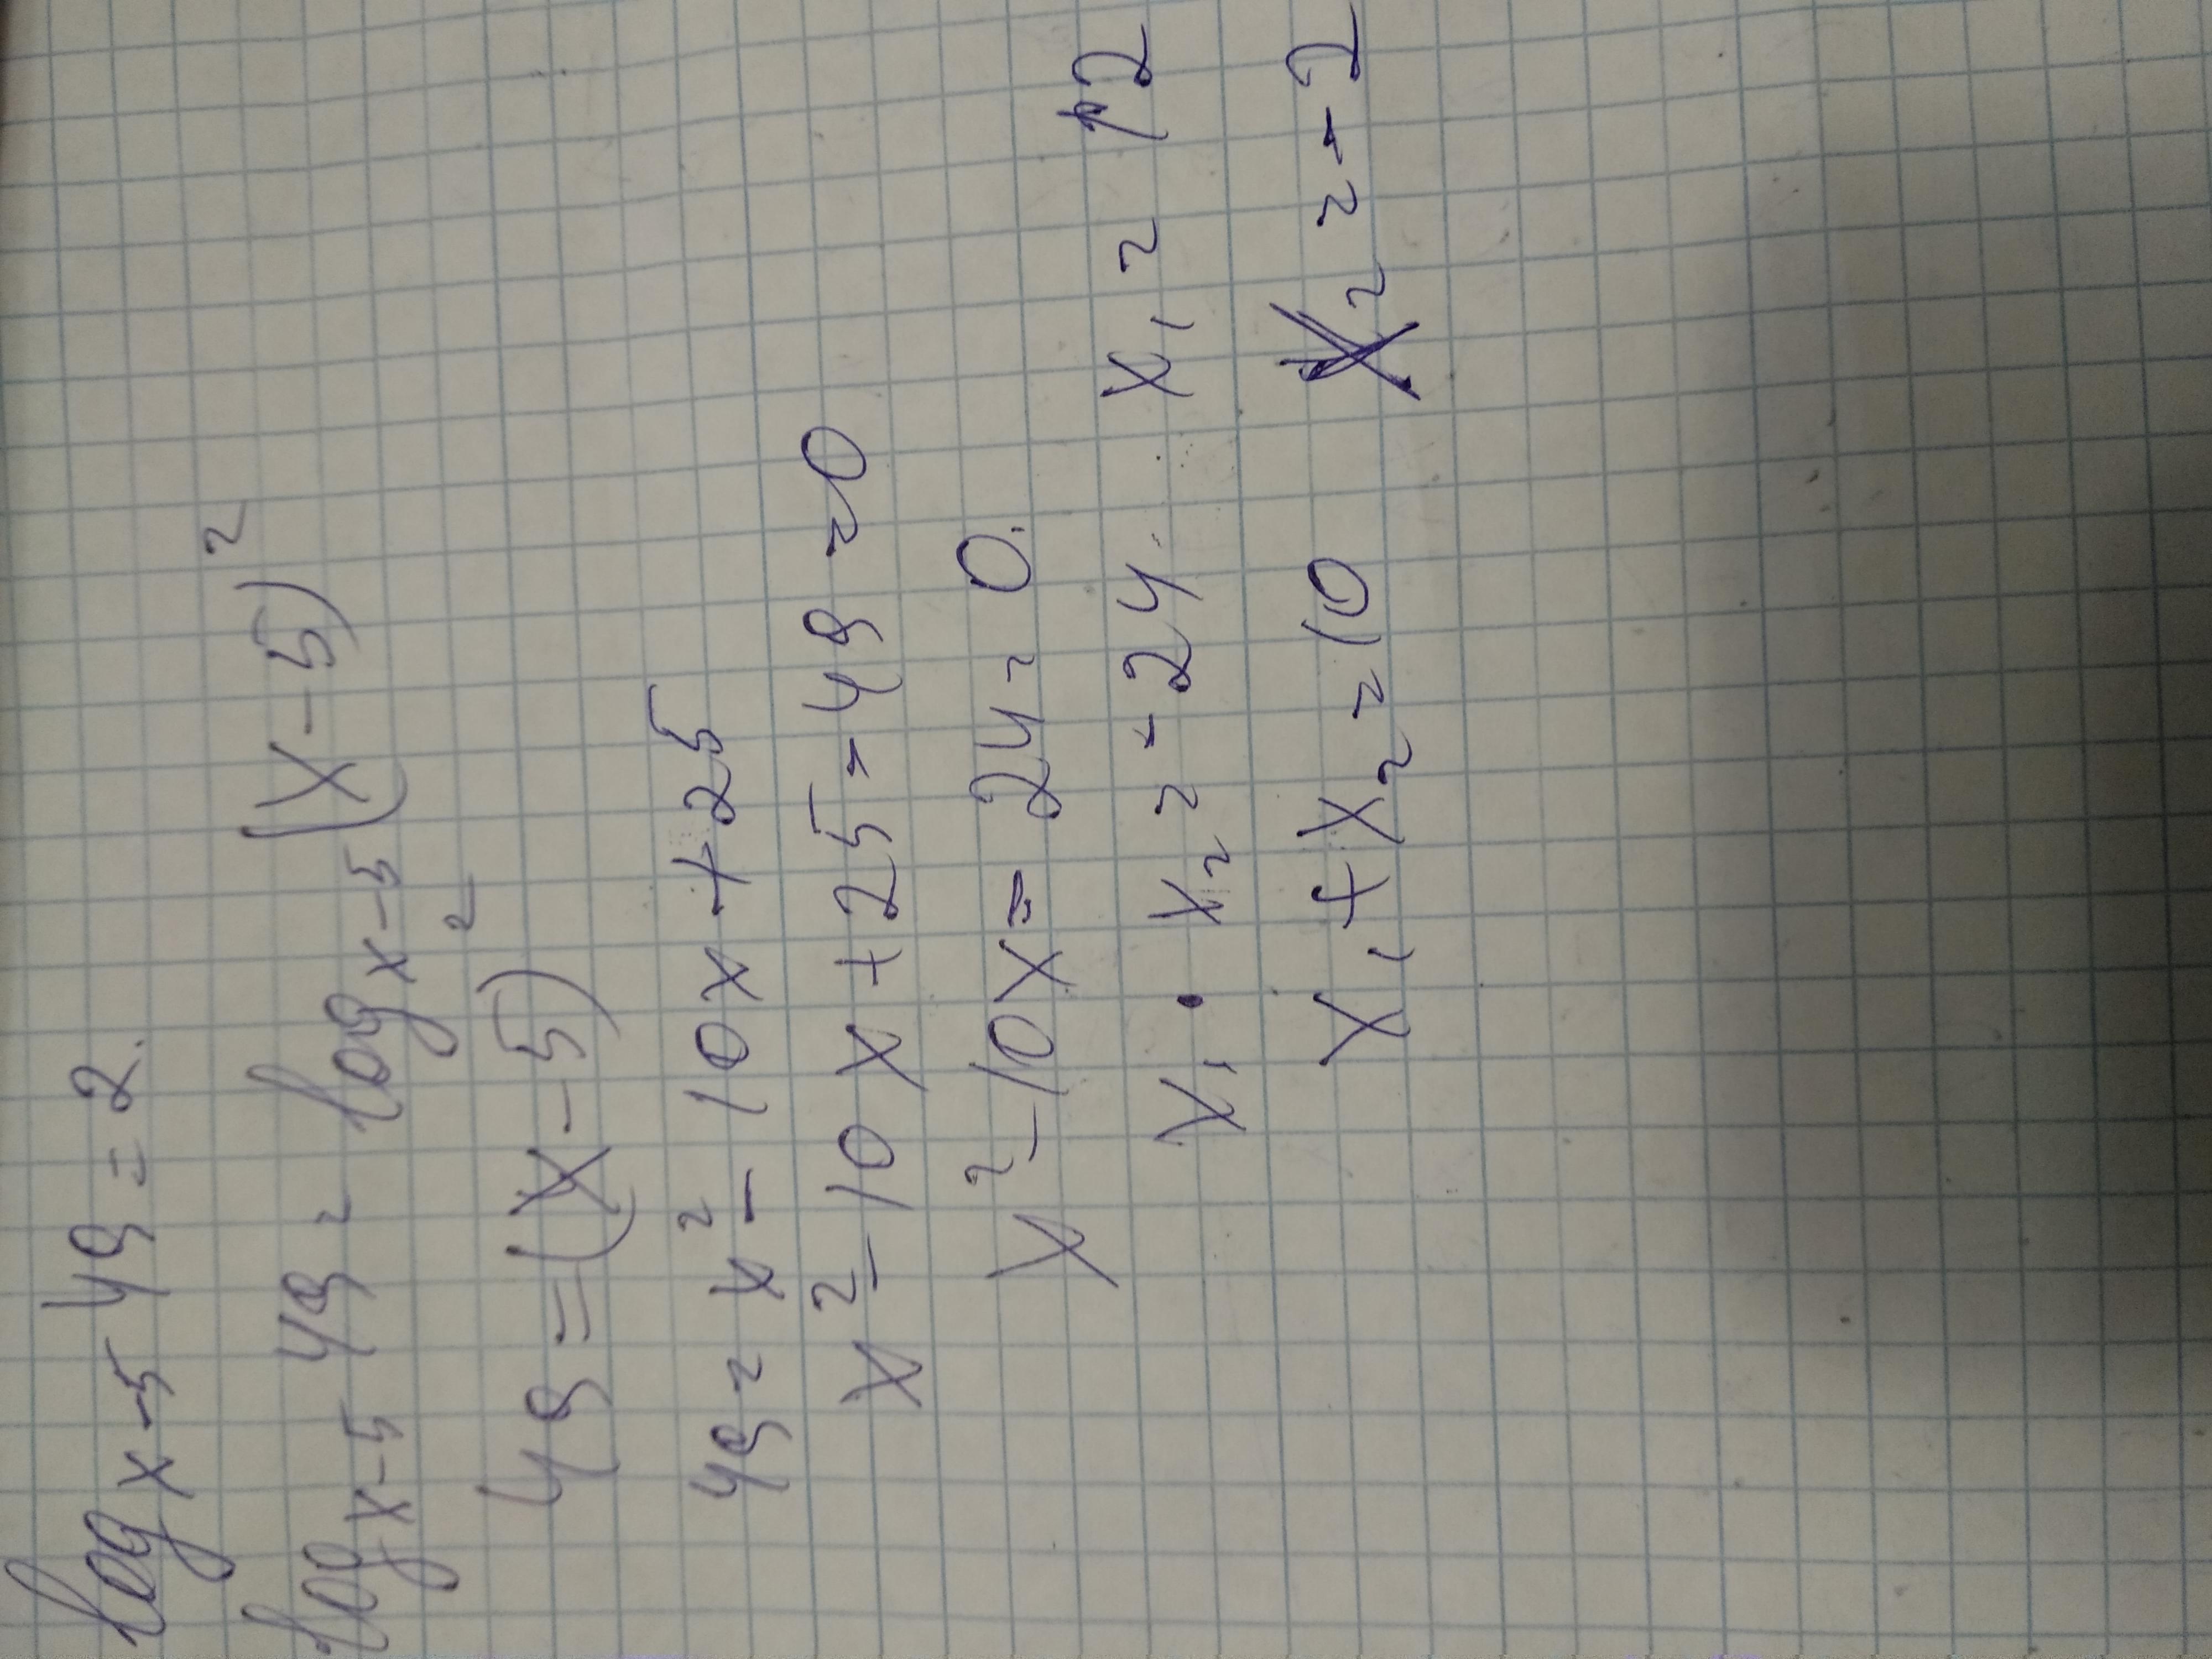 log_{x-5} 49 = 2.
log_{x-5} 49 = log_{x-5} (x-5)^2
49 = (x-5)^2
49 = x^2 - 10x + 25
x^2 - 10x + 25 - 49 = 0
x^2 - 10x - 24 = 0.
x_1 · x_2 = -24. x_1 = 12
x_1 + x_2 = 10 x_2 = -2